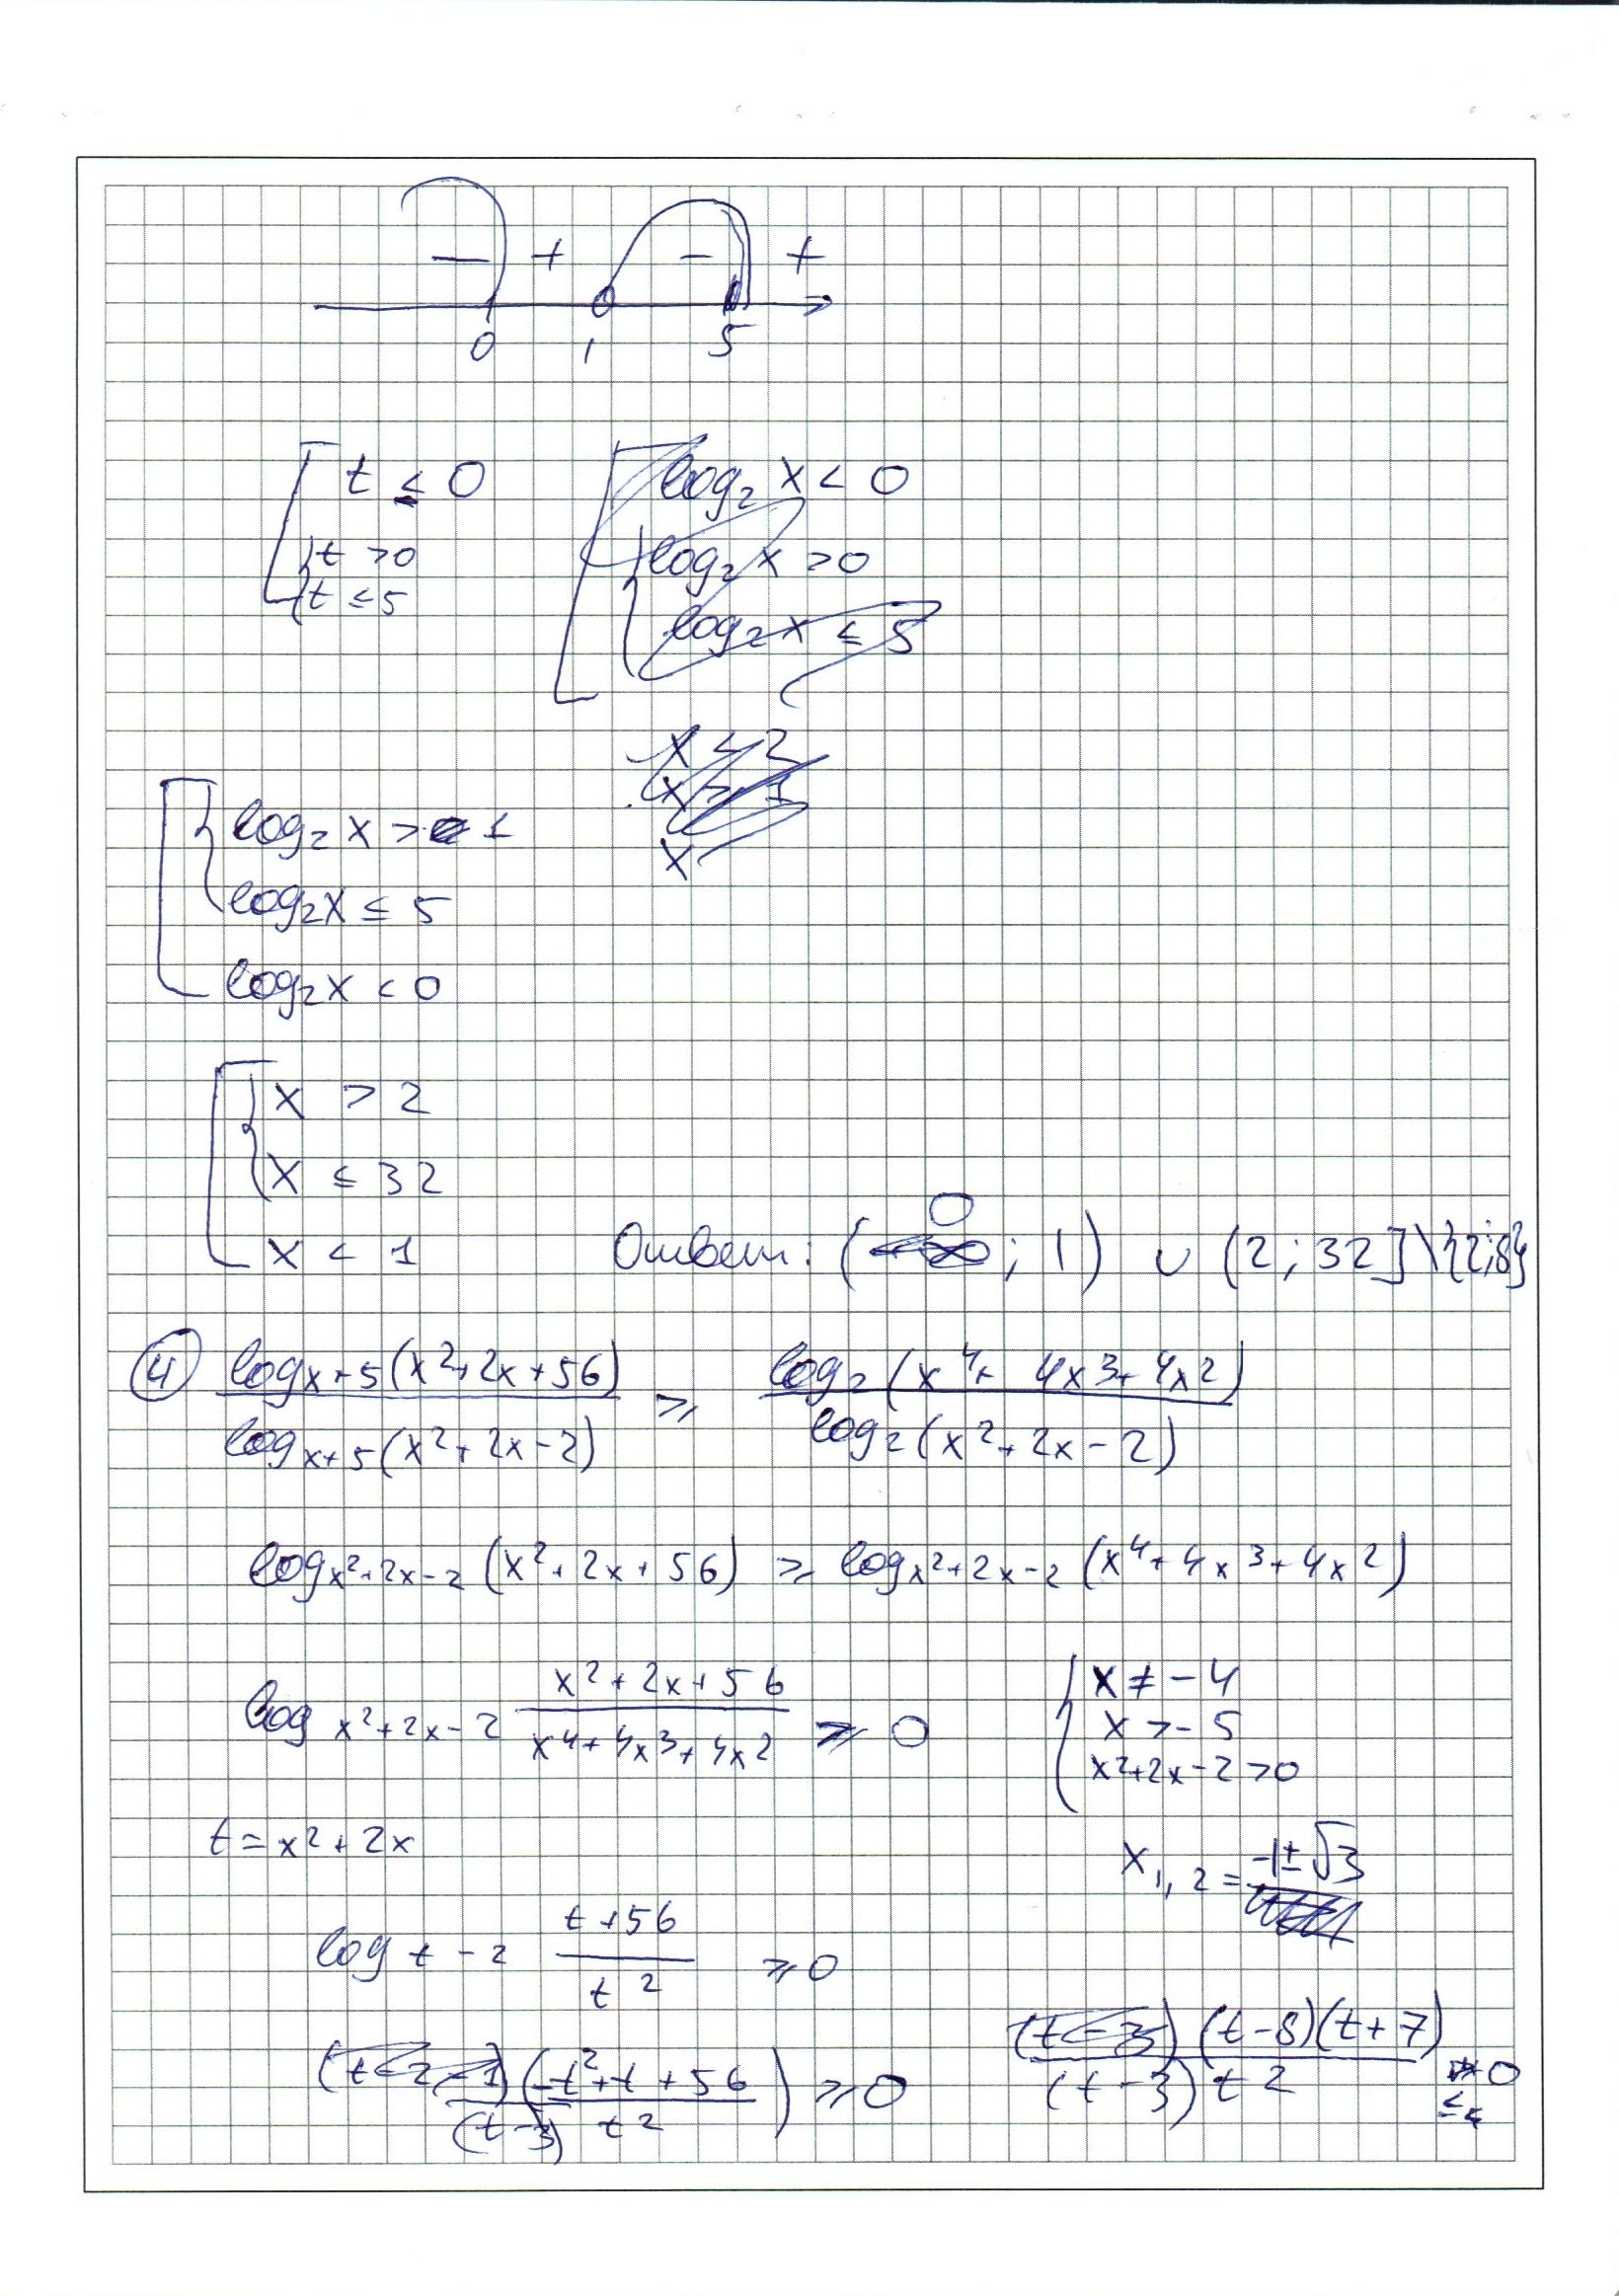 − + − +
0 1 5
t ≤ 0
t > 0
t ≤ 5
log₂ x < 0
log₂ x > 0
log₂ x ≤ 5
x < 2
x > 1
x
log₂ x > 1
log₂ x ≤ 5
log₂ x < 0
x > 2
x ≤ 32
x < 1
Ответ: (0; 1) ∪ (2; 32] \ {2; 8}
④ log_{x+5}(x²+2x+56) / log_{x+5}(x²+2x−2) ≥ log₂(x⁴+4x³+4x²) / log₂(x²+2x−2)
log_{x²+2x−2}(x²+2x+56) ≥ log_{x²+2x−2}(x⁴+4x³+4x²)
log_{x²+2x−2} (x²+2x+56)/(x⁴+4x³+4x²) ≥ 0
x ≠ −4
x > −5
x²+2x−2 > 0
t = x²+2x
x₁,₂ = −1±√3
log_{t−2} (t+56)/t² ≥ 0
(t−2−1)(−t²+t+56)/((t−3) t²) ≥ 0
(t−3)(t−8)(t+7)/((t−3) t²) ≤ 0